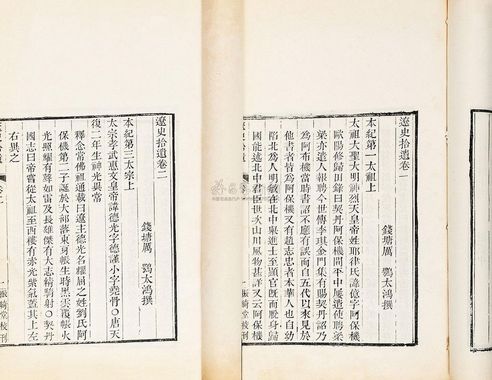 遼史拾遺卷一
錢塘厲 鶚太鴻撰
本紀第一太祖上
太祖大聖大明神烈天皇帝姓耶律氏諱億字阿保機
歐陽修歸田錄曰契丹阿保機開平中屢遣使聘梁
梁亦遣人報聘今世傳李琪金門集有賜契丹詔乃
為阿布機當時書詔不應有誤而自五代以來見於
他書者皆為阿保機又有趙志忠者本華人也自幼
陷北為人明敏在北中舉進士至顯官既而脫身歸
國能述北中君臣世次山川風物甚詳又云阿保機
一 振綺堂校刊
遼史拾遺卷二
錢塘厲 鶚太鴻撰
本紀第三太宗上
太宗孝武惠文皇帝諱德光字德謹小字堯骨○唐天
復二年生神光異常
釋念常佛祖通載曰遼主德光名耀屈之姓劉氏阿
保機第二子誕於大部落東牙帳生時黑雲覆帳火
光照耀有聲如雷及長雄傑有大志精騎射○契丹
國志曰帝嘗從太祖至西樓有赤光紫氣蓋其上左
右異之
一 振綺堂校刊